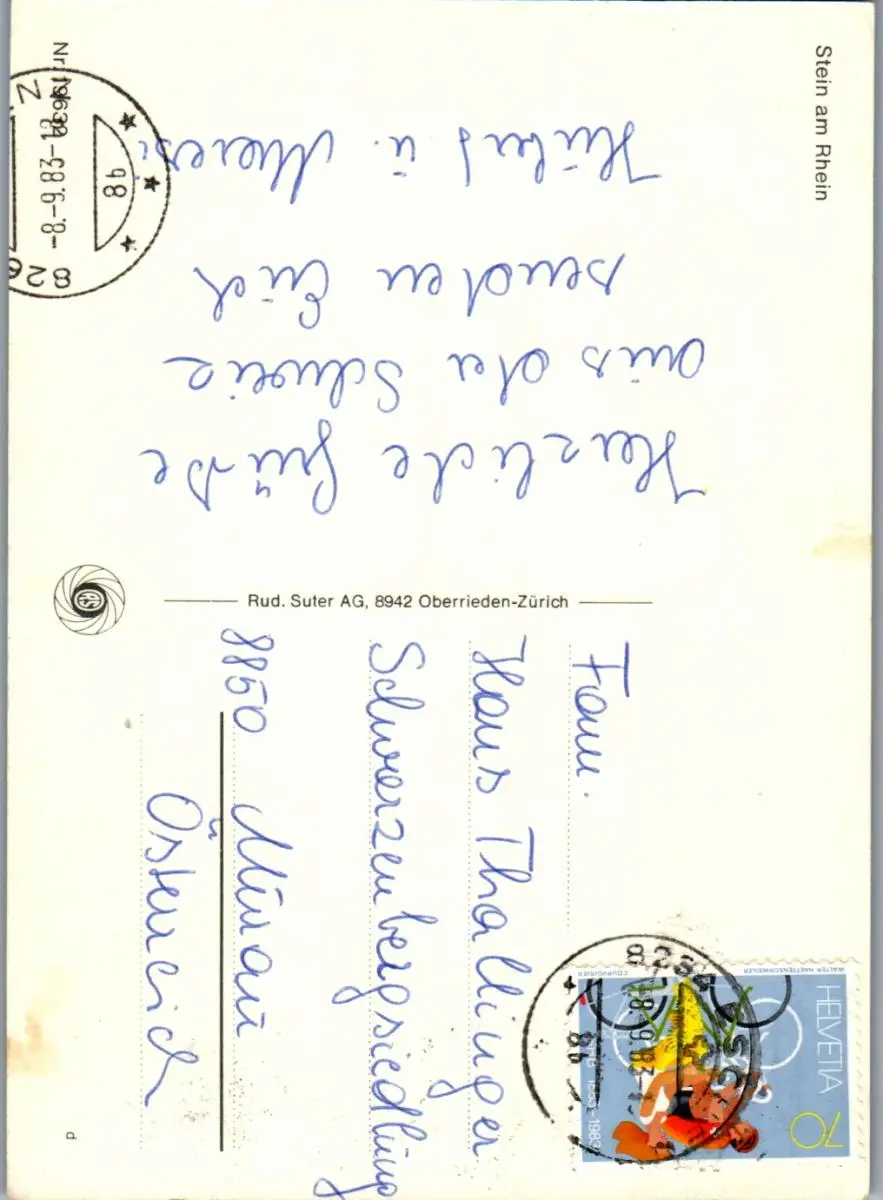 Stein am Rhein
Herzliche Grüße
aus der Schweiz
senden Euch
Hubert u.
Rud. Suter AG, 8942 Oberrieden-Zürich
Fam.
Hans Thallinger
Schwarzenbergsiedlung
8850 Murau
Österreich
HELVETIA
70
1883-1983
WALTER HAETTENSCHWEILER
COURVOISIER
-8.-9.83-18
8b
P